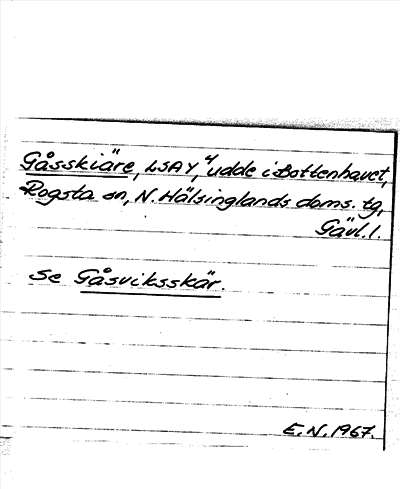 Gåsskiäre, LSA Y, 4 udde i Bottenhavet,
Rogsta sn, N. Hälsinglands doms. tg,
Gävl. l.
Se Gåsviksskär.
E. N. 1967.